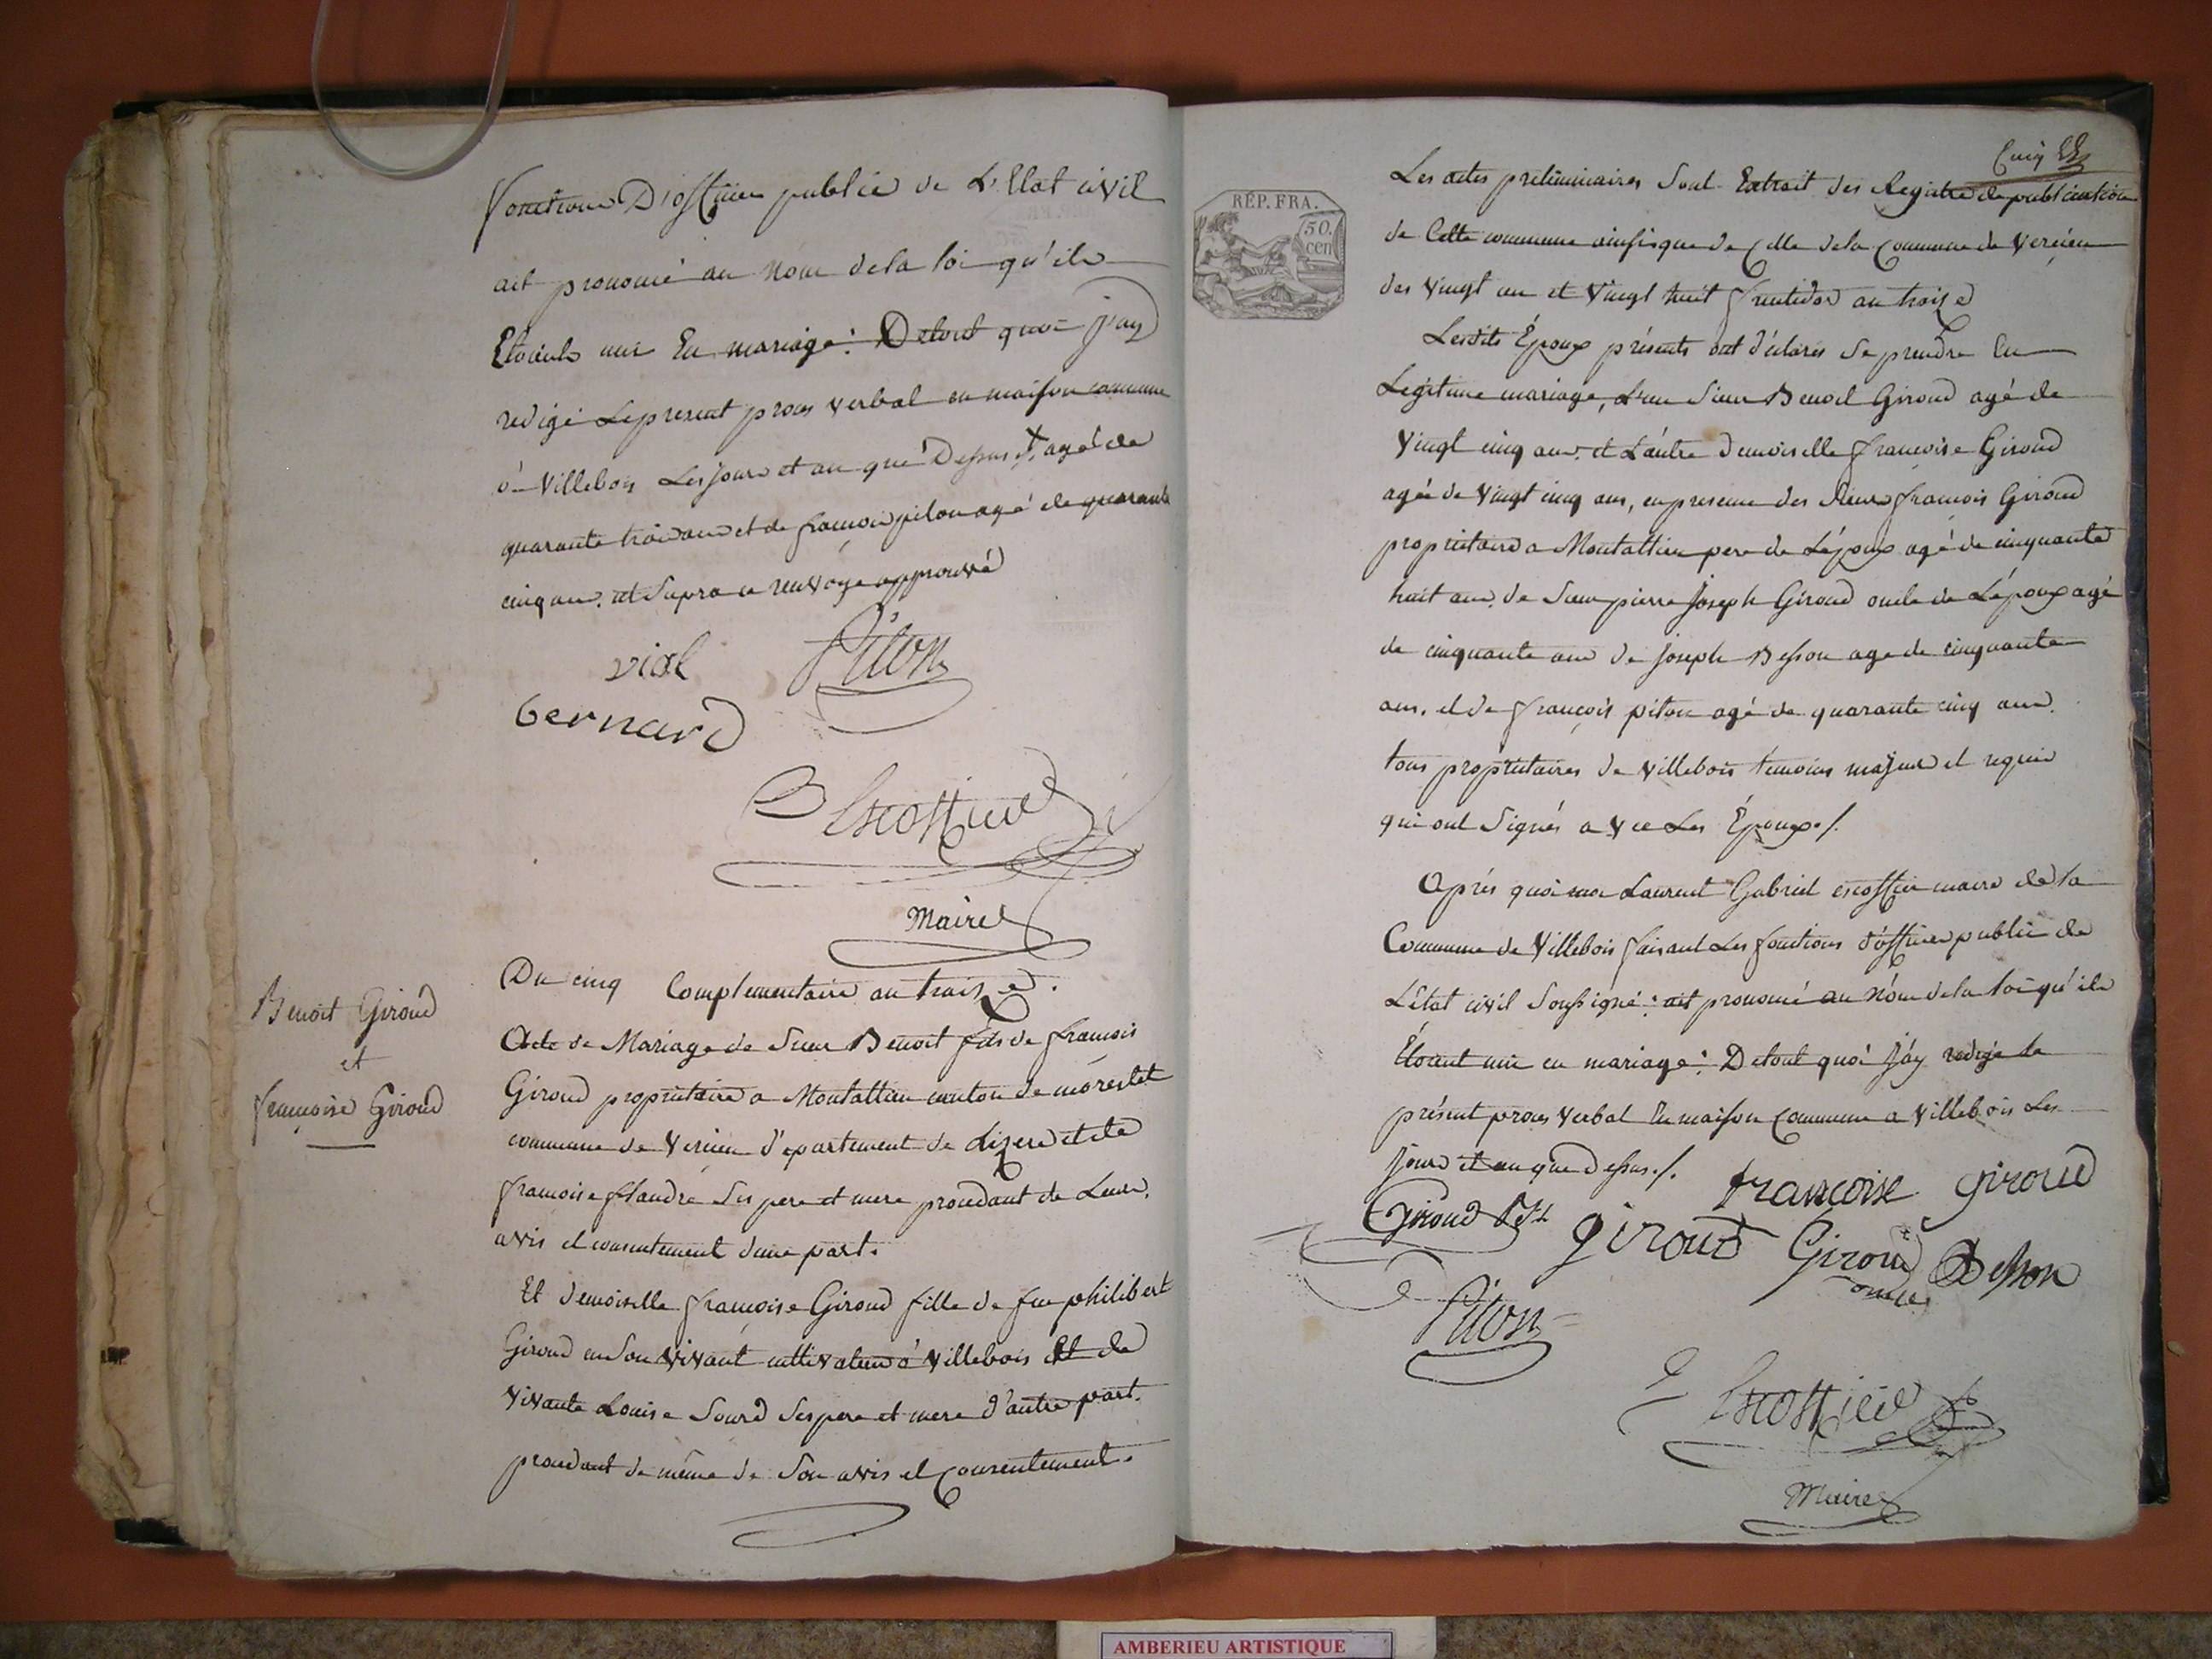 fonctions D'officier public de L'Etat civil
ait prononcé au Nom de la loi qu'ils
Etoients unis En mariage : De tout quoi j'ay
redigé Le present proces verbal en maison commune
à Villebois Les jour et an que Dessus + agé de
quarante trois ans et de francois piton agé de quarante
cinq ans. et Supra ce renvoye approuvé
vial Piton
bernard
Escoffier
Maire
Benoit Giroud
et
françoise Giroud
Du cinq Complementaire an treize.
Acte de Mariage de Sieur Benoit fils de francois
Giroud proprietaire a Montallieu canton de morestet
commune de Vercieu d'epartement de Lizere et de
francoise flandre Ses pere et mere procedant de Leurs
avis et consentement d'une part.
Et demoiselle françoise Giroud fille de feu philibert
Giroud en Son vivant cultivateur à Villebois Et de
vivante Louise Sourd Ses pere et mere d'autre part.
procedant de même de Son avis et Consentement.
RÉP. FRA.
50.
cen
Les actes preliminaires Sont Extrait des Registre de publication
de Cette commune ainsi que de Celle de la Commune de Vercieu
des Vingt un et Vingt huit fructidor an treize
Lesdits Époux présents ont d'éclarés Se prendre En
Legitime mariage, L'un Sieur Benoit Giroud agé de
Vingt cinq ans. et L'autre Demoiselle françoise Giroud
agée de Vingt cinq ans, en presence des Sieurs françois Giroud
proprietaire a Montallieu pere de L'époux agé de cinquante
huit ans, de Sieur pierre Joseph Giroud oncle de L'époux agé
de cinquante ans de Joseph Besson age de cinquante
ans, et de françois piton agé de quarante cinq ans
tous proprietaires de Villebois temoins majeurs et requis
qui ont Signés avec Les Époux ./.
Aprés quoi moi Laurent Gabriel escoffier maire de la
Commune de Villebois faisant Les fonctions d'officier public de
L'état civil Soussigné : ait prononcé au Nom de la loi qu'ils
Étoient unis en mariage : De tout quoi j'ay redigé Le
présent proces Verbal En maison Commune a Villebois Les
jour et an que Dessus ./. françoise giroud
Giroud giroud Giroud Besson
oncle
Piton
Escoffier
Maire
AMBERIEU ARTISTIQUE